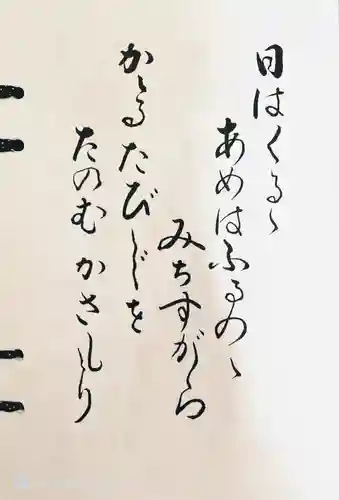 日はくるゝ
あめはふるのゝ
みちすがら
かゝるたびぢを
たのむかさしり